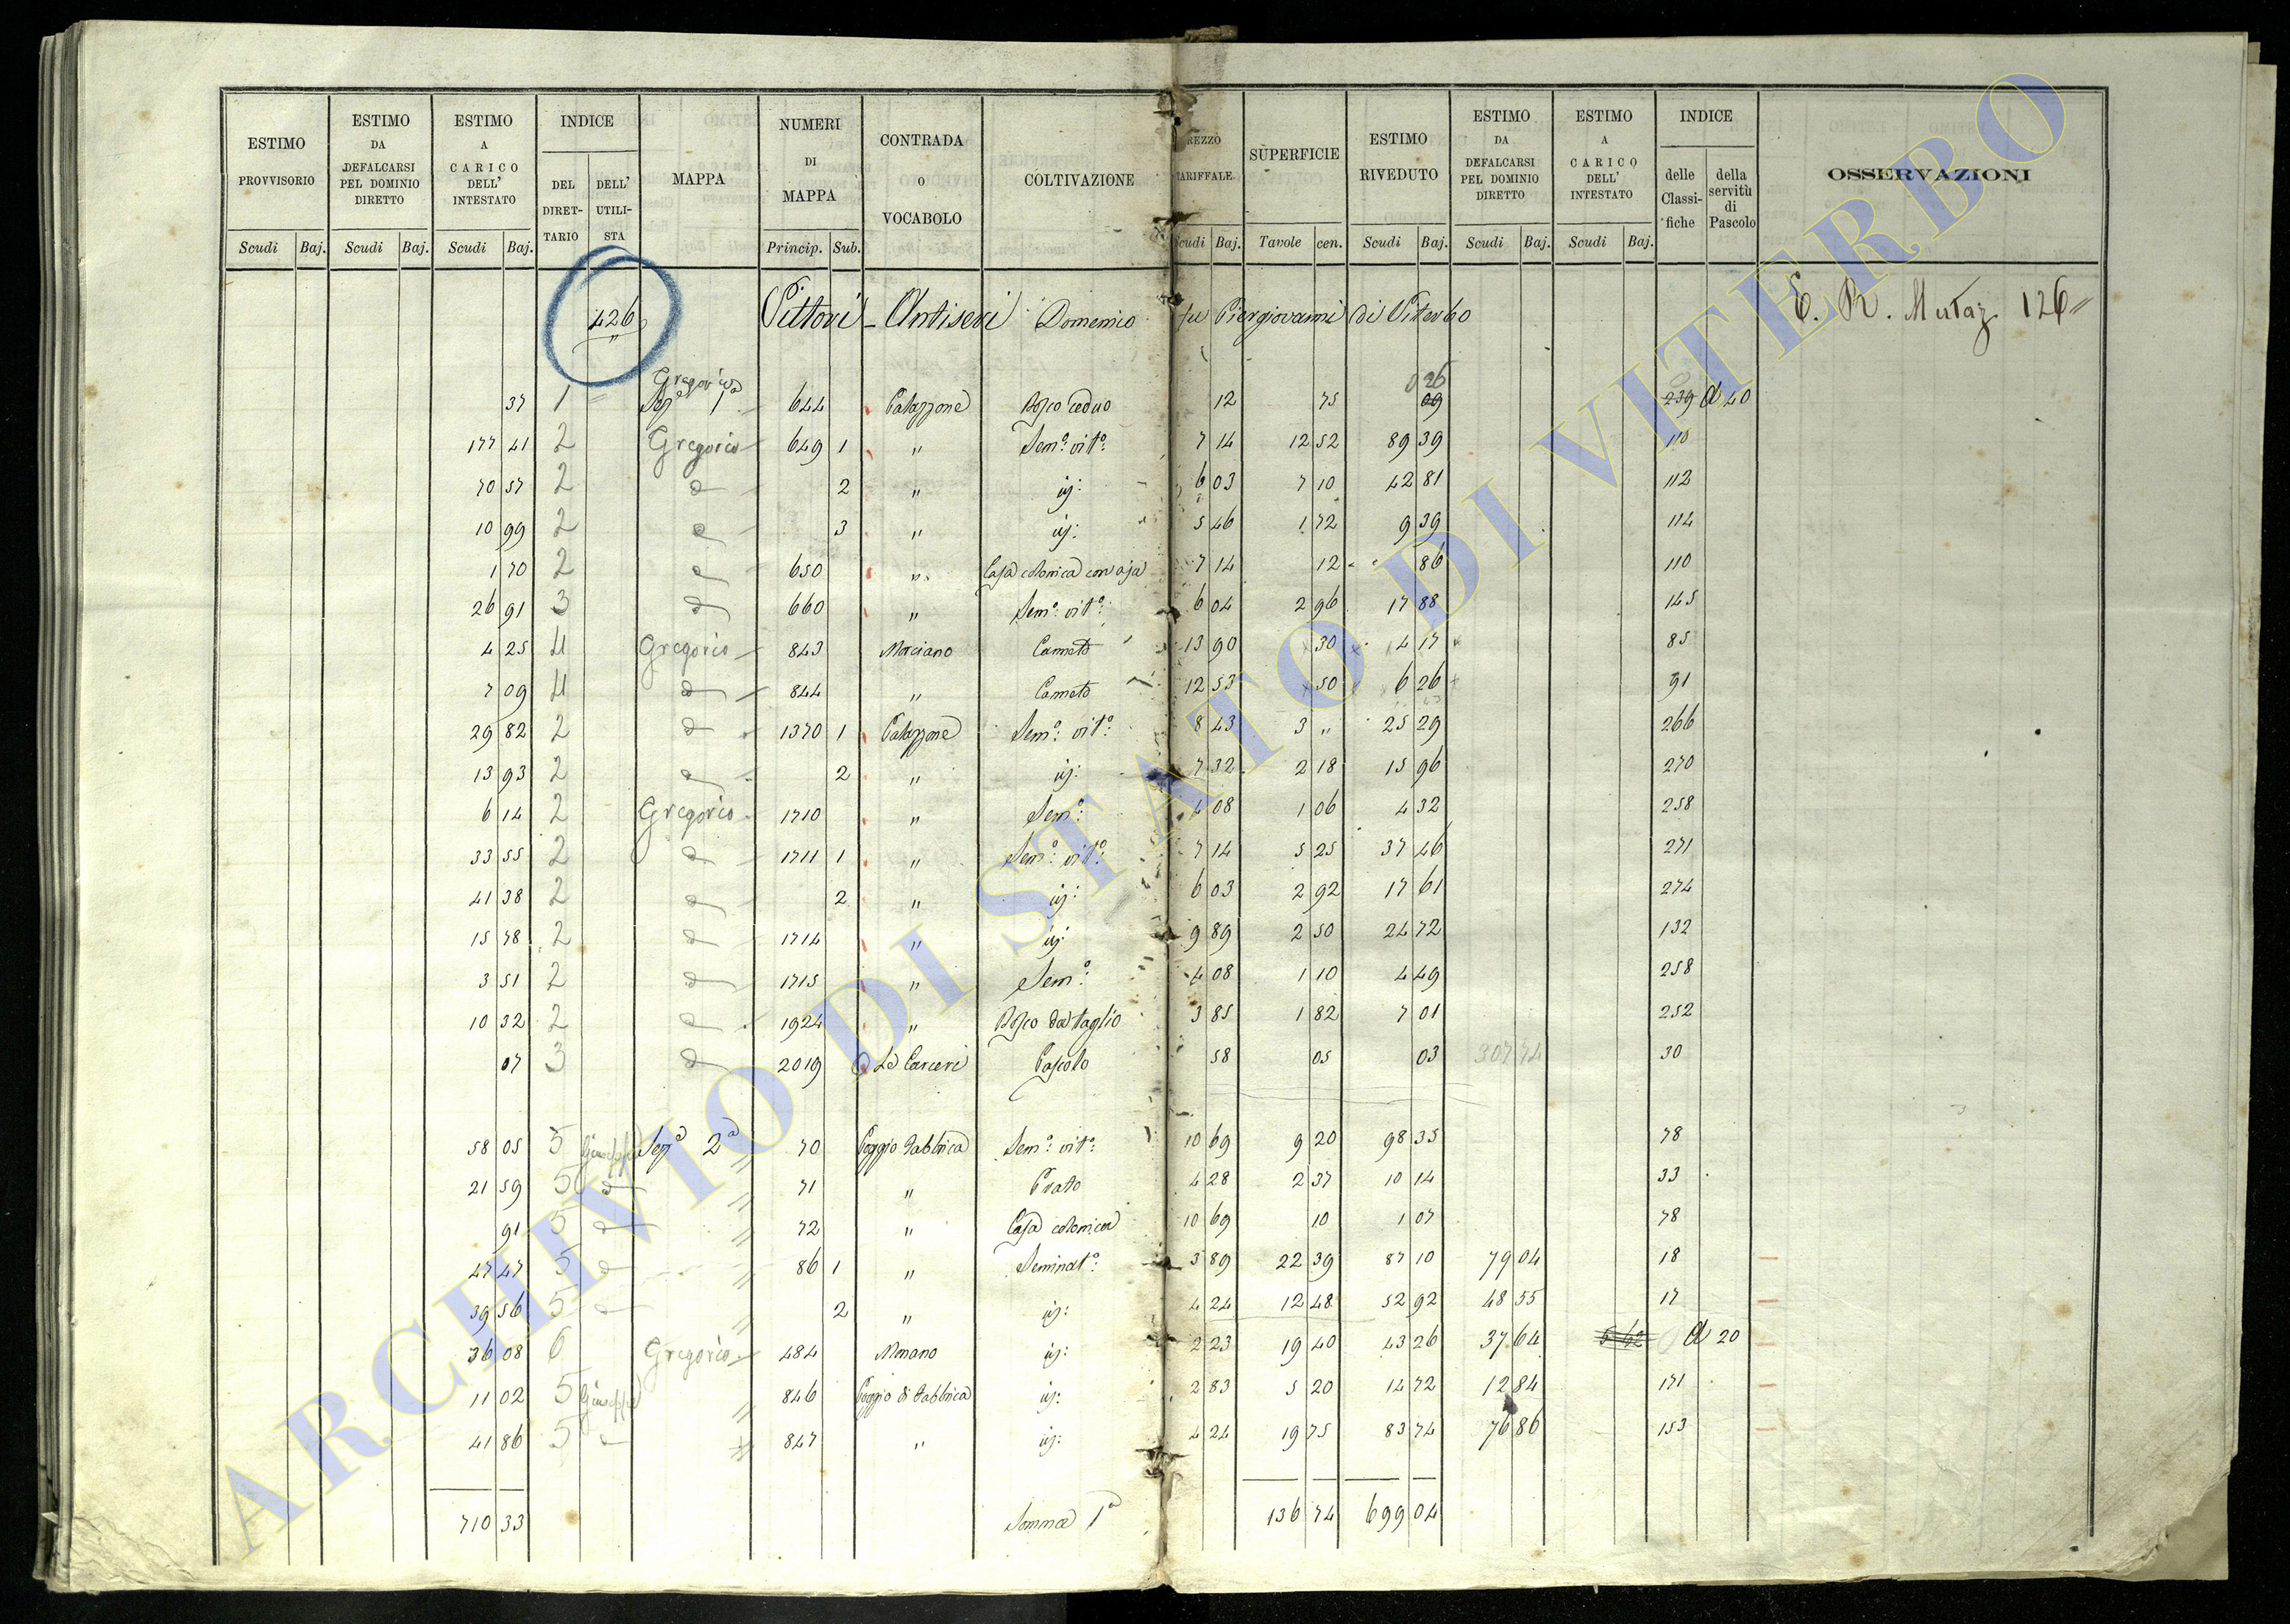 ESTIMO PROVVISORIO | ESTIMO DA DEFALCARSI PEL DOMINIO DIRETTO | ESTIMO A CARICO DELL' INTESTATO | INDICE DEL DIRETTARIO | DELL' UTILISTA | MAPPA | NUMERI DI MAPPA | CONTRADA O VOCABOLO | COLTIVAZIONE | PREZZO TARIFFALE | SUPERFICIE | ESTIMO RIVEDUTO | ESTIMO DA DEFALCARSI PEL DOMINIO DIRETTO | ESTIMO A CARICO DELL' INTESTATO | INDICE delle Classifiche | della servitù di Pascolo | OSSERVAZIONI
Scudi Baj. Scudi Baj. Scudi Baj. Princip. Sub. Scudi Baj. Tavole cen. Scudi Baj. Scudi Baj. Scudi Baj.
426 Pittori - Antiseri Domenico fu Piergiovanni di Viterbo E. R. Mutaz. 126
Gregorio 0 26
37 1 Sez.e 1a 644 Palazzone Bosco ceduo 12 75 09 239 a 40
177 41 2 Gregorio 649 1 " Sem.o vit.o 7 14 12 52 89 39 110
70 57 2 d 2 " id: 6 03 7 10 42 81 112
10 99 2 d 3 " id: 5 46 1 72 9 39 114
1 70 2 d 650 " Casa colonica con aja 7 14 12 86 110
26 91 3 d 660 " Sem.o vit.o 6 04 2 96 17 88 145
4 25 4 Gregorio 843 Morciano Canneto 13 90 30 4 17 85
7 09 4 d 844 " Canneto 12 53 50 6 26 91
29 82 2 d 1370 1 Palazzone Sem.o vit.o 8 43 3 " 25 29 266
13 93 2 d 2 " id: 7 32 2 18 15 96 270
6 14 2 Gregorio 1710 " Sem.o 4 08 1 06 4 32 258
33 55 2 d 1711 1 " Sem.o vit.o 7 14 5 25 37 46 271
41 38 2 d 2 " id: 6 03 2 92 17 61 274
15 78 2 d 1714 " id: 9 89 2 50 24 72 132
3 51 2 d 1715 " Sem.o 4 08 1 10 4 49 258
10 32 2 d 1924 " Bosco da taglio 3 85 1 82 7 01 252
07 3 d 2019 Le Carceri Pascolo 58 05 03 307 74 30
58 05 5 Giuseppe Sez.e 2a 70 Poggio Fabbrica Sem.o vit.o 10 69 9 20 98 35 78
21 59 5 d 71 " Prato 4 28 2 37 10 14 33
91 5 d 72 " Casa colonica 10 69 10 1 07 78
47 47 5 d 86 1 " Seminat.o 3 89 22 39 87 10 79 04 18
39 56 5 d 2 " id: 4 24 12 48 52 92 48 55 17
36 08 6 Gregorio 484 id: 2 23 19 40 43 26 37 64 5 62 a 20
11 02 5 Giuseppe 846 Poggio di Fabbrica id: 2 83 5 20 14 72 12 84 171
41 86 5 d 847 " id: 4 24 19 75 83 74 76 86 153
710 33 Somma 1a 136 74 699 04
ARCHIVIO DI STATO DI VITERBO